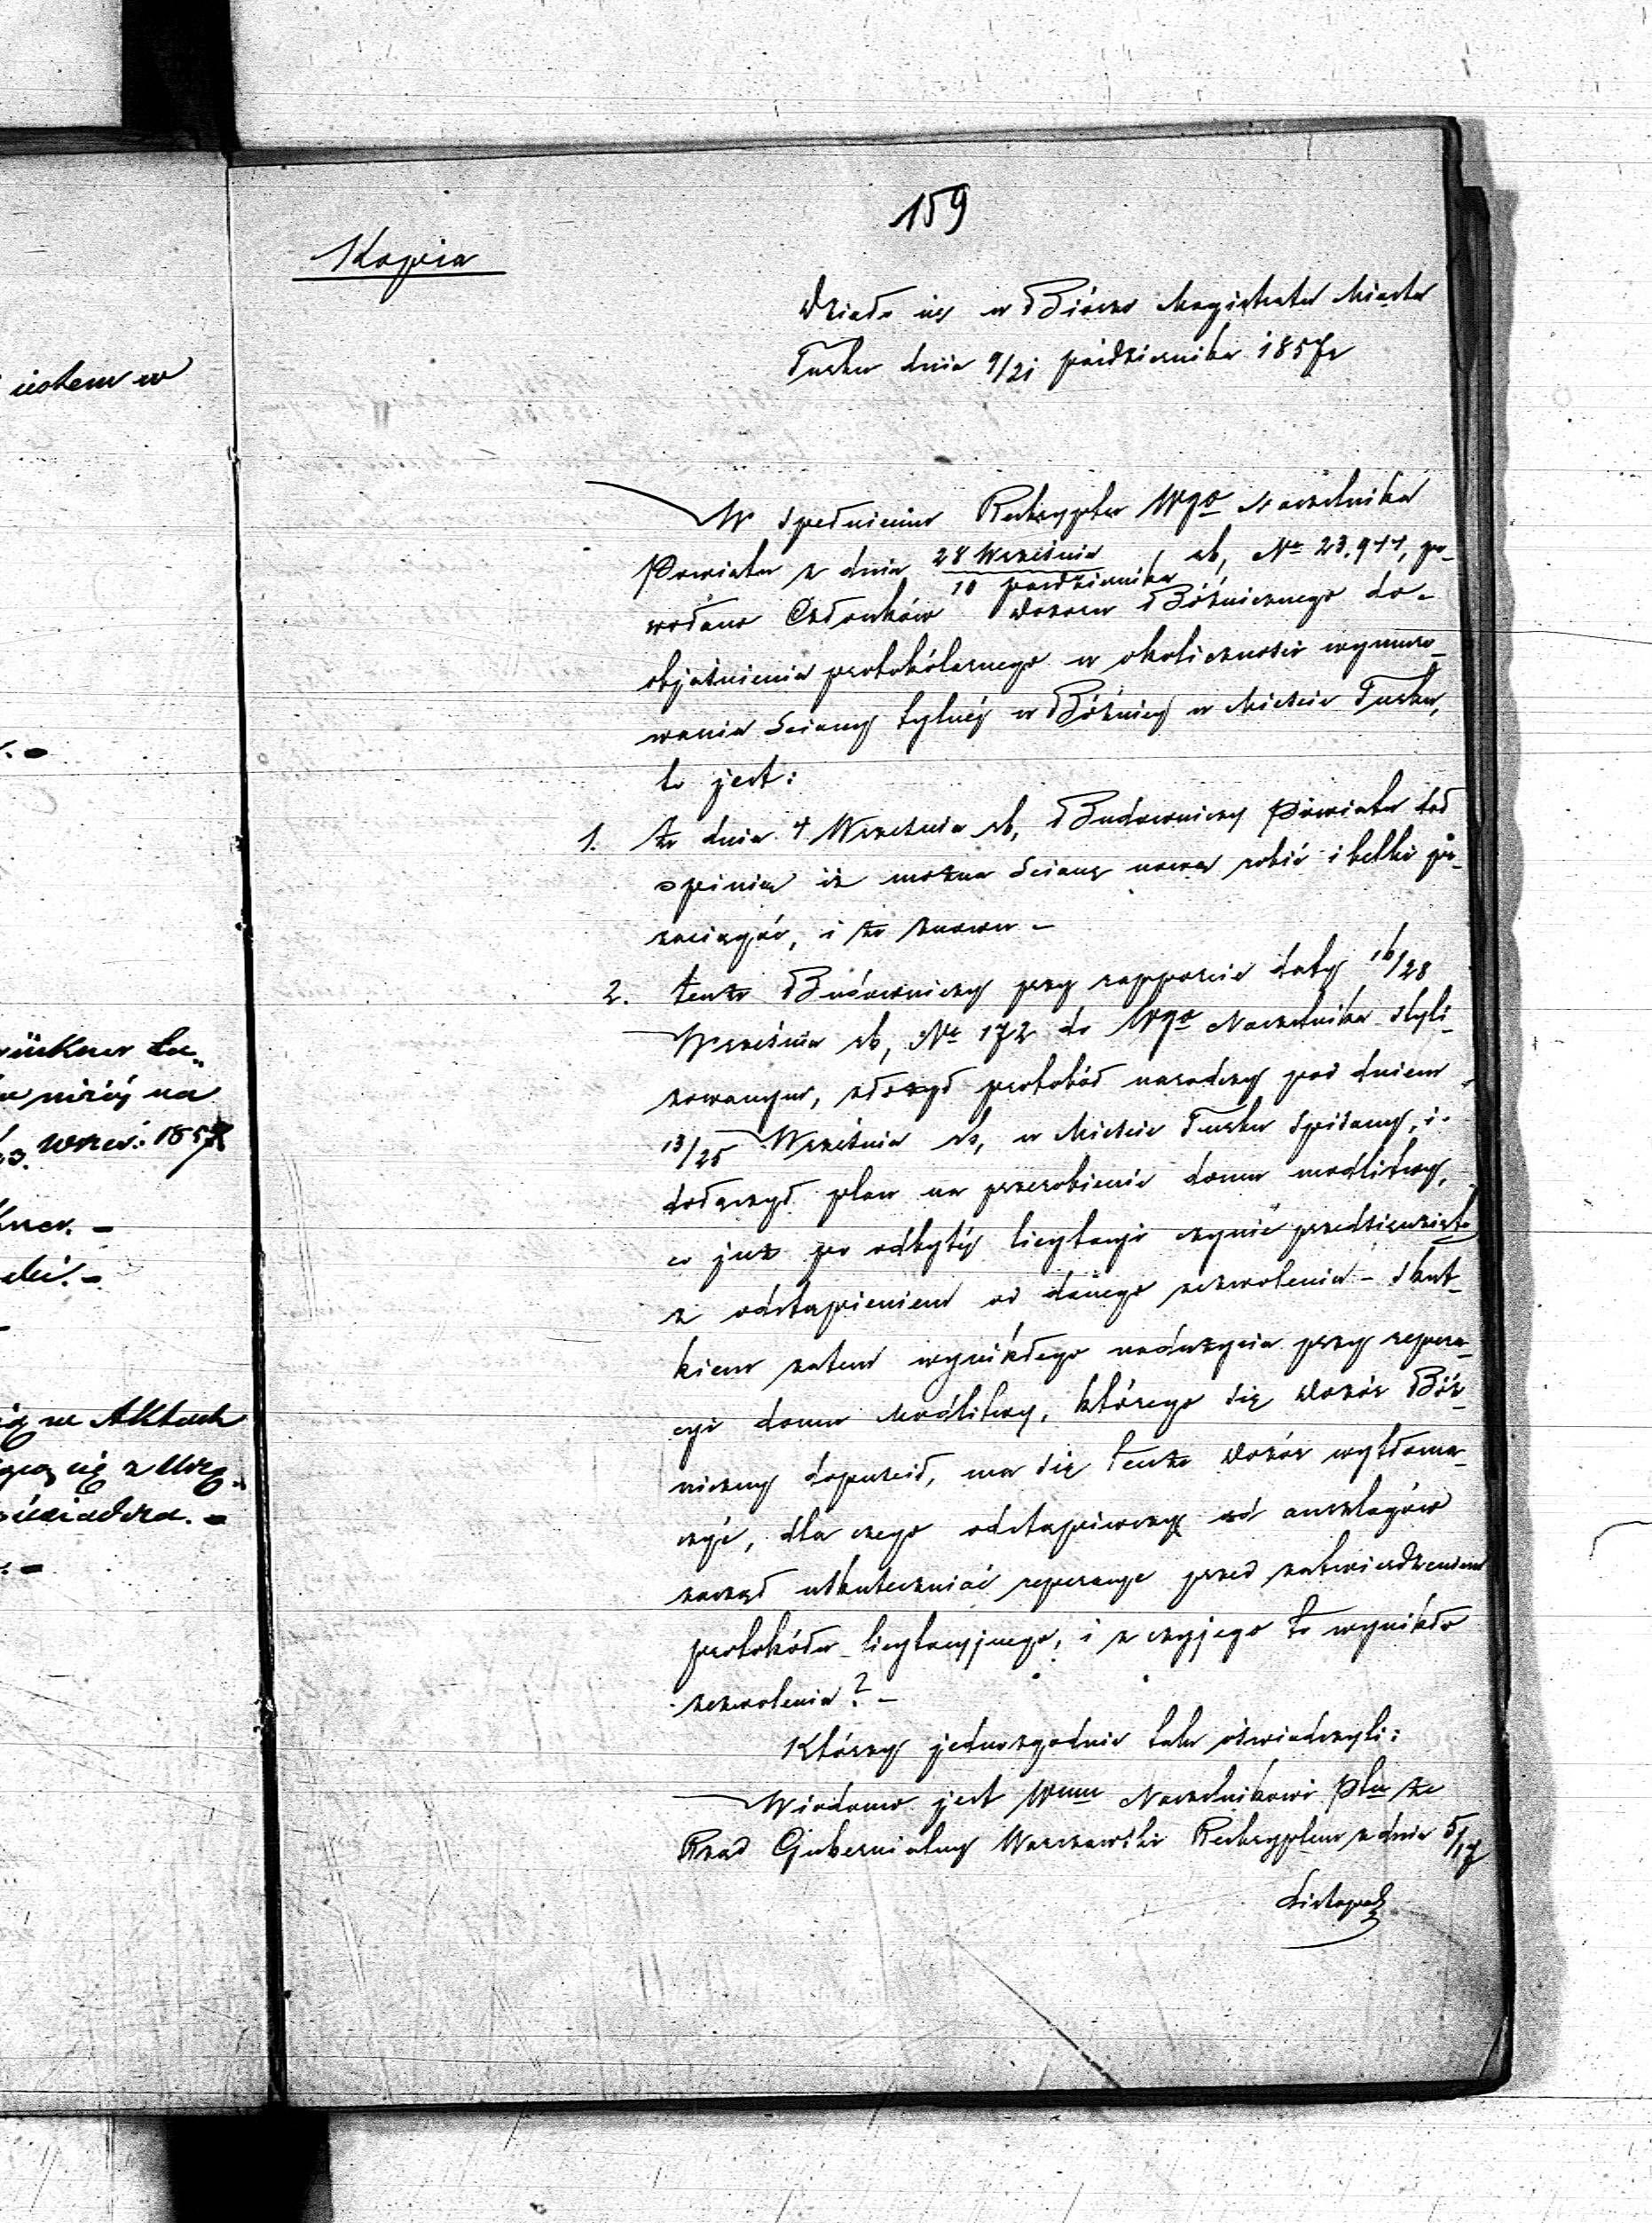 159
Kopia
Działo się w Biórze Magistratu Miasta
Turku dnia 9/21 października 1857 r
W spełnieniu Reskryptu Wgo Naczelnika
Powiatu z dnia 28 Września / 10 października rb, No 23.911, po-
wołano Członków Dozoru Bóżniczego do-
objaśnienia protokólarnego w okoliczności wymuro-
wania ściany tylnéj w Bóżnicy w Mieście Turku,
to jest:
1. że dnia 4 Września rb, Budowniczy Powiatu dał
opinią iż można ścianę nową robić i belki po-
zaciągać, i że znowu -
2. tenże Budowniczy przy rapporcie daty 16/28
Września rb, No 172 do Wgo Naczelnika styli-
zowanym, złożył protokół narodczy pod dniem
13/25 Września rb, w Mieście Turku spisany, i
dołączył plan na przerobienie domu modlitwy,
co już po odbytéj licytacyi czynić przedsięwzięto
z odstąpieniem od danego zezwolenia - skut-
kiem zatem wynikłego nadużycia przy repera-
cyi domu Modlitwy, którego się Dozór Bóż-
niczny dopuścił, ma się tenże Dozór wytłoma-
czyć, dla czego odstąpiwszy od anszlagów
zaczął uskuteczniać reperacye przed zatwierdzeniem
protokółu licytacyjnego, i z czyjego to wynikło
zezwolenia? -
Którzy jednozgodnie tak oświadczyli:
Wiadomo jest Wmu Naczelnikowi Ptu że
Rząd Gubernialny Warszawski Reskryptem z dnia 5/17
Listopad
istem w
niżéj na
Wrześ: 1857 r
w Aktach
się z Urzę-